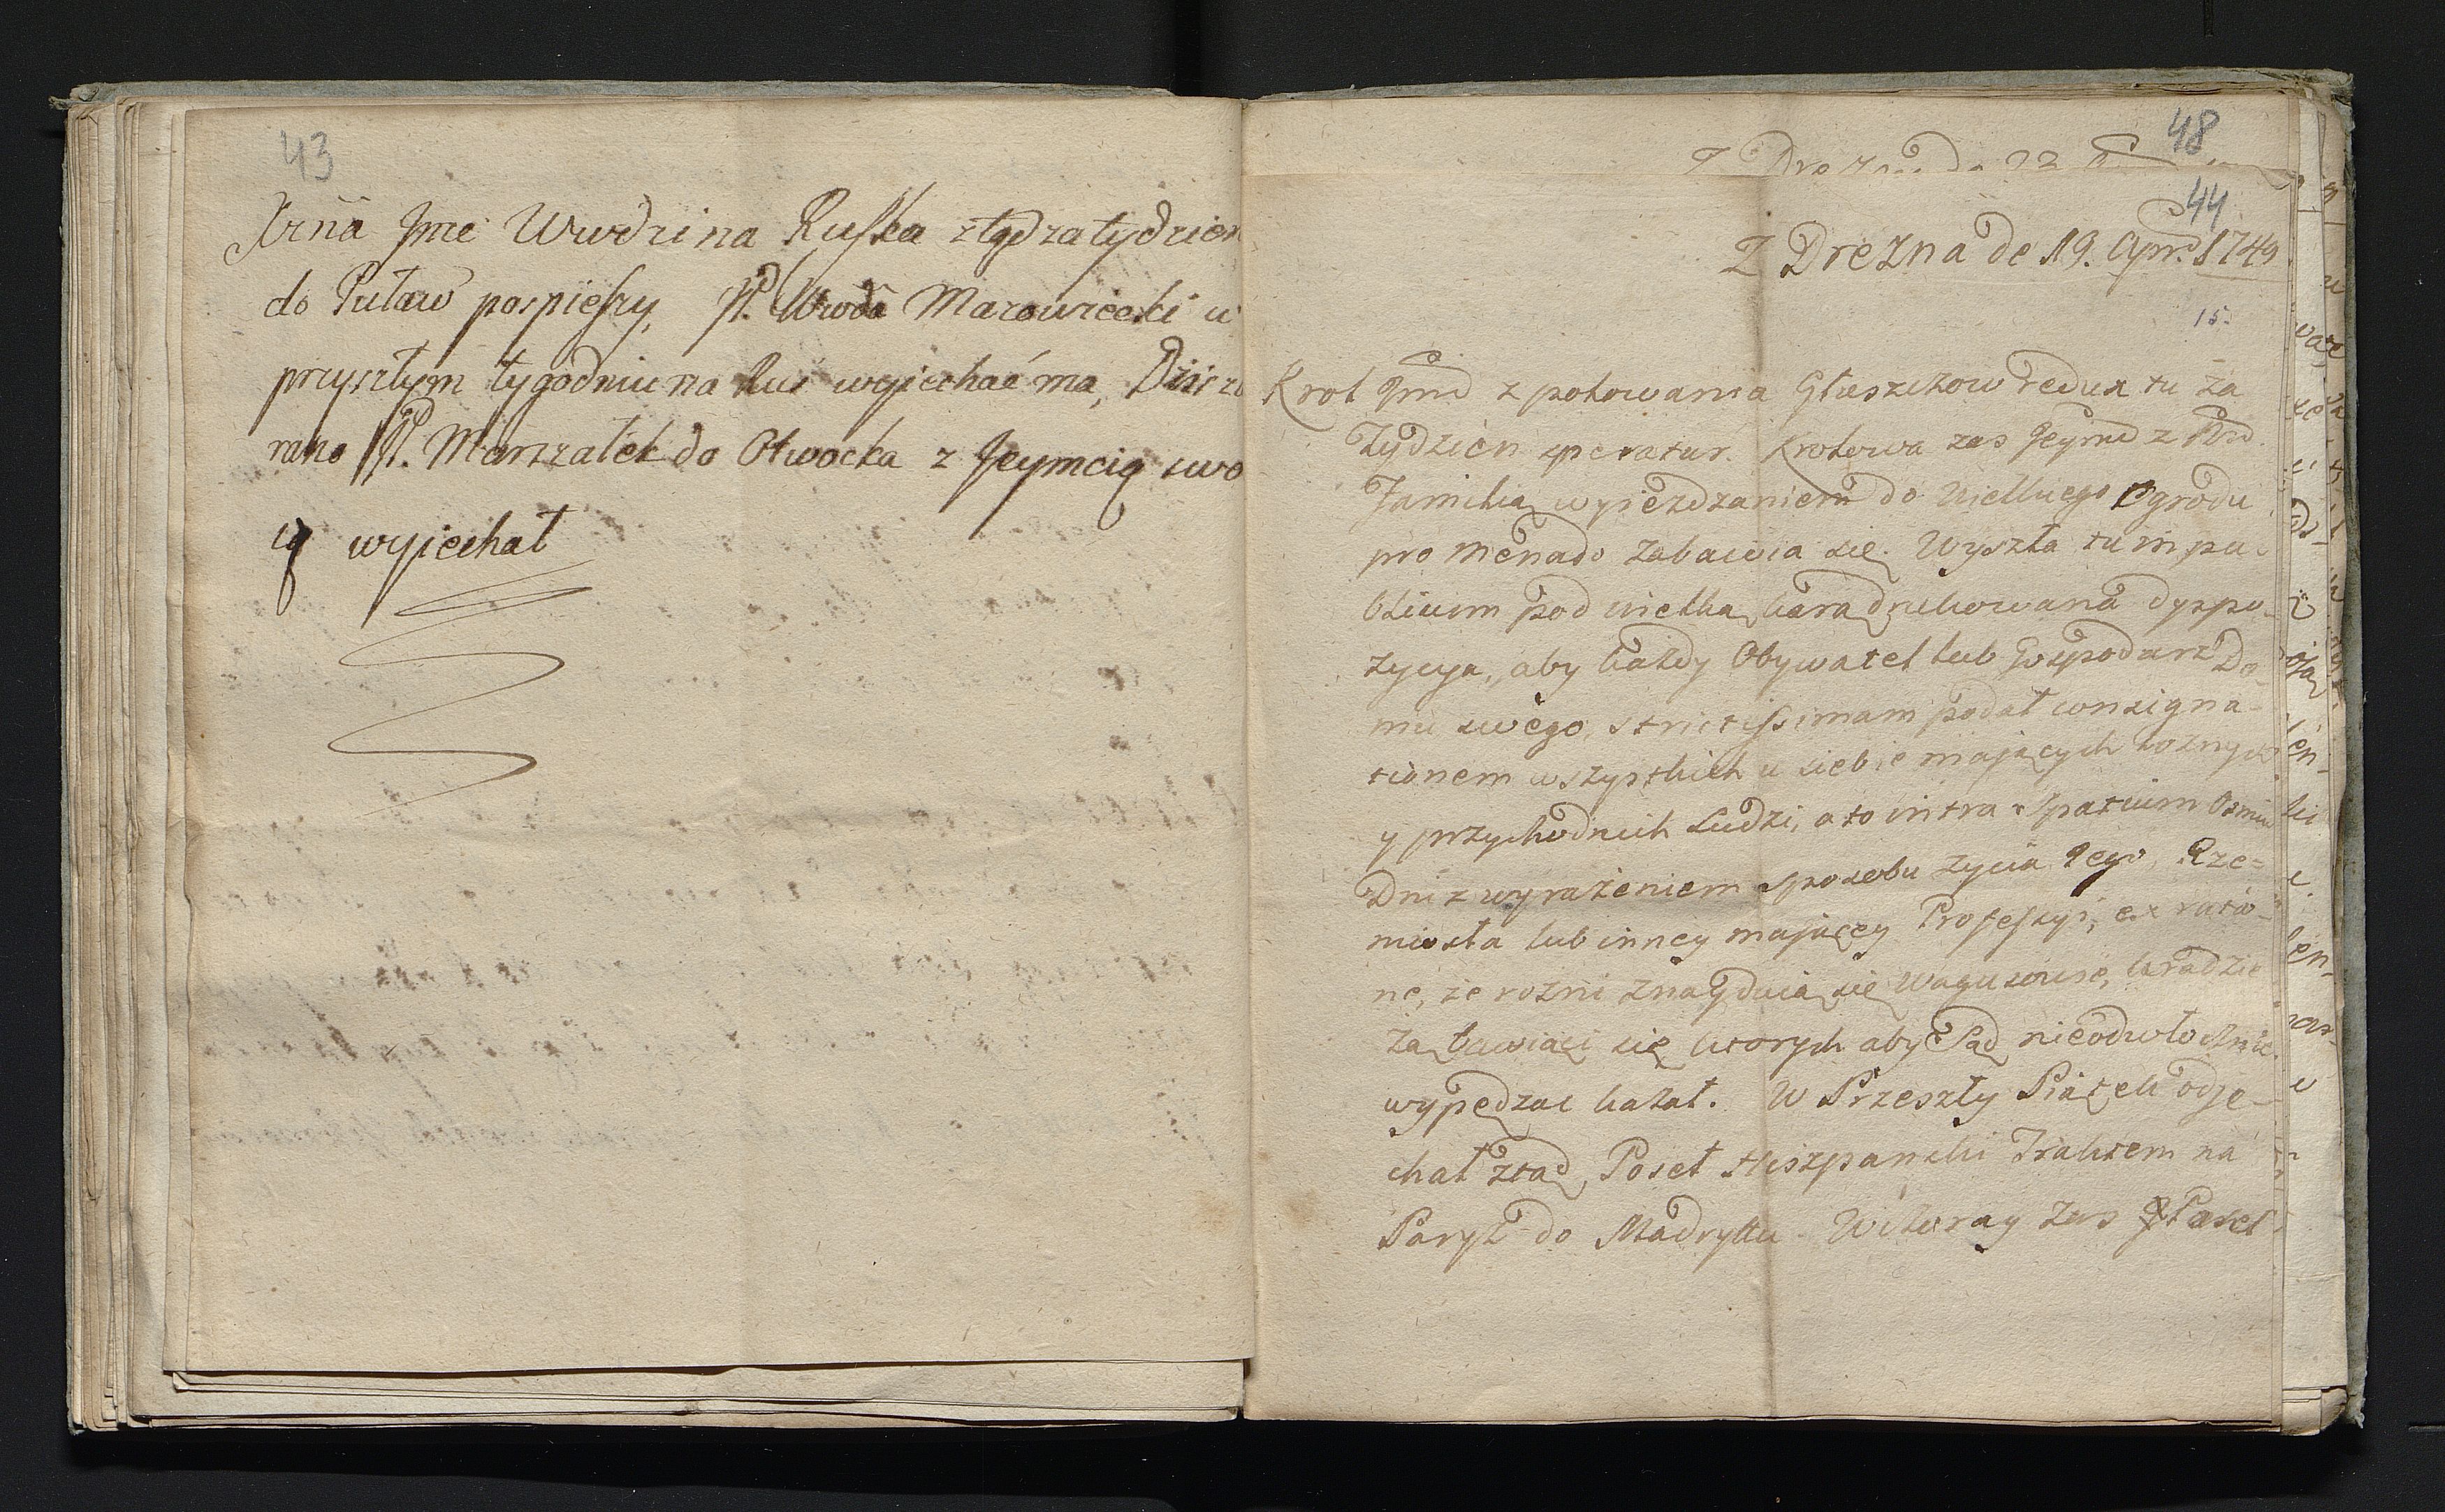 43
Xrna Jmć Wwdzina Ruska ztąd za tydzien
do Puław pospieszy, JP. Wwda Mazowiecki w
przyszłym tygodniu na Ruś wyjechać ma, Dziś z
rana JP. Marszałek do Otwocka z Jeymcią swo
ią wyjechał
48
Z Drezna de 22
44
Z Drezna de 19. Apr. 1749
15.
Krol Jmć z polowania Głuszczow redux tu za
tydzien speratur. Krolowa zas Jeymć z Krol.
Familią wyjezdzaniem do Wielkiego Ogrodu
pro menado zabawia się. Wyszła tu in pu-
blicum pod wielką karą drukowana dyspo-
zycya, aby każdy Obywatel lub Gospodarz Do-
mu swego, strictissimam podał consigna-
tionem wszystkich u siebie mających roznych
y przychodnich Ludzi, a to intra spatium Osmiu
Dni z wyrażeniem sposobu życia Jego, Rze=
miosła lub inney mającey Professyi, ex ratio-
ne, że rozni znayduią się Wagusowie, kradzie
żą bawiąci się ktorych aby Sąd nieodwłocznie
wypędzać kazał. W Przeszły Piątek odje-
chał ztąd Poseł Hiszpanski Traktem na
Paryż do Madryttu. Wczoray zas Poseł